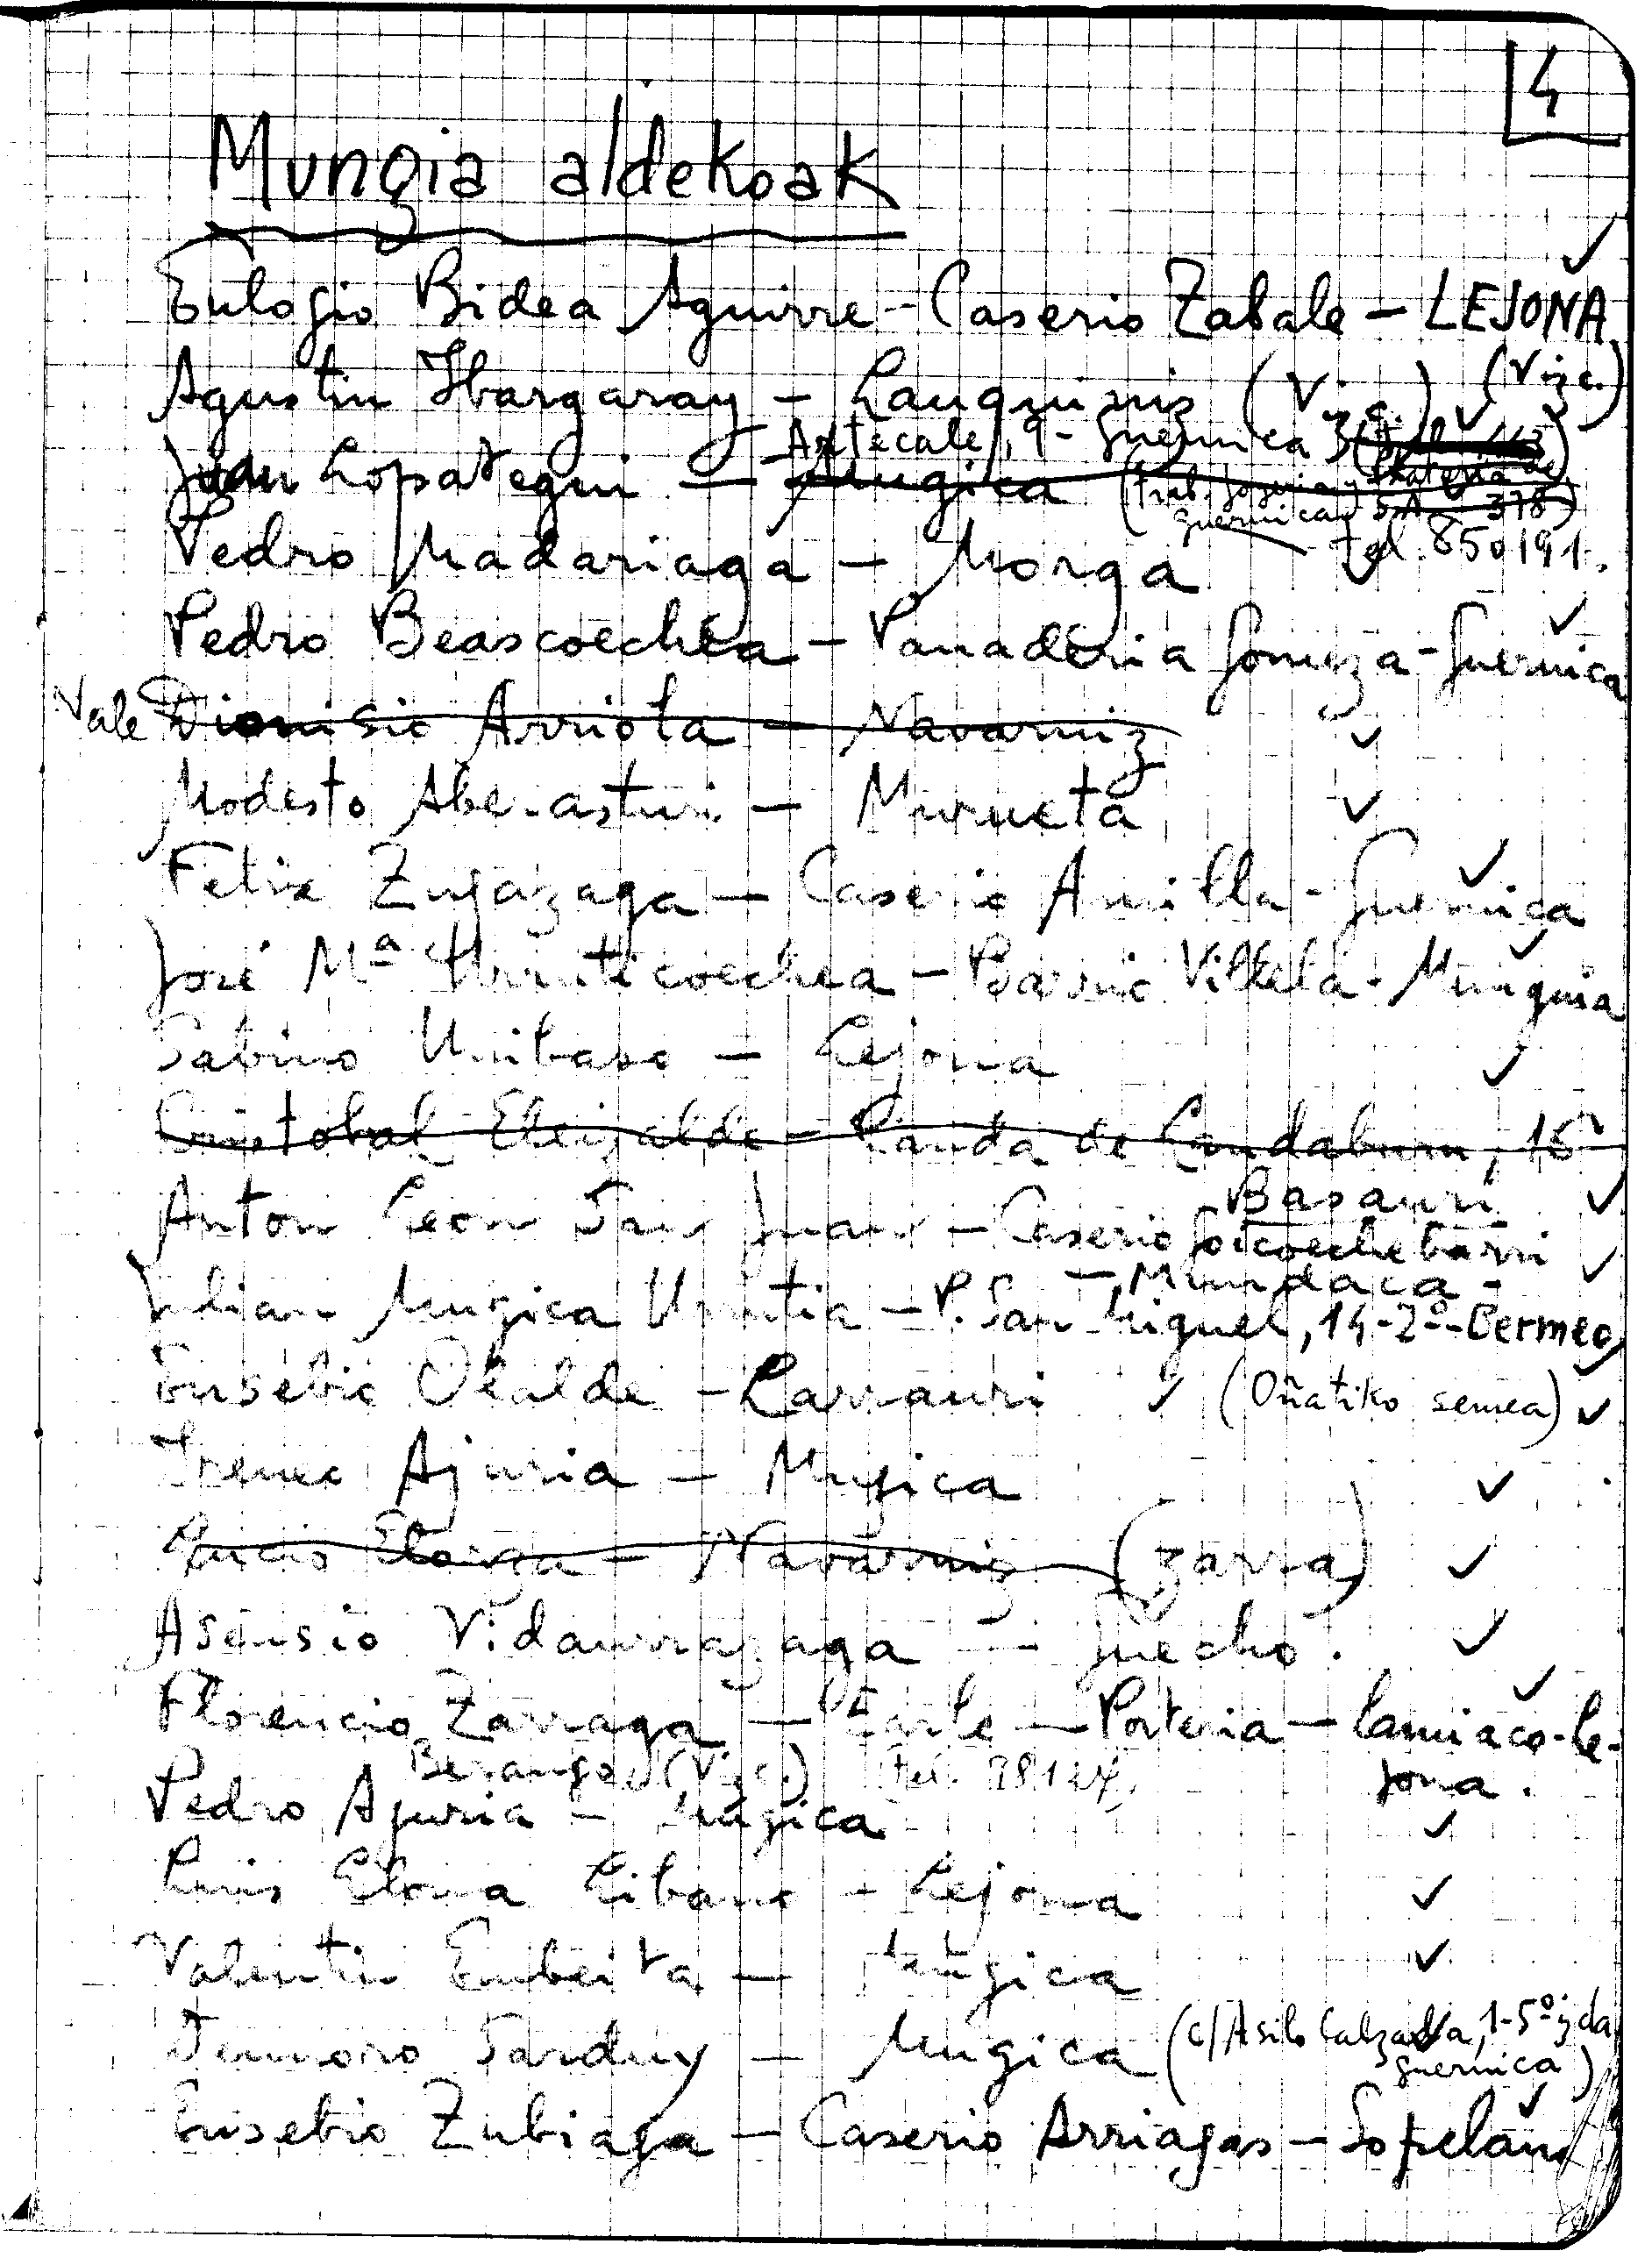 4
Mungia aldekoak
Eulogio Bidea Aguirre - Caserio Zabale - LEJONA
(Vizc.)
Agustin Ibargaray - Lauquiniz (Vizc.)
Artecale, 9 - Guernica
Juan Lopategui - Mugica
Guernica tel. 850191.
Pedro Madariaga - Morga
Pedro Beascoechea - Panaderia Gomeza - Guernica
Vale Dionisio Arriola - Navarniz
Modesto Aberasturi - Murueta
Felix Zugazaga - Caserio Anilla - Guernica
José Mª Urruticoechea - Barrio Villela - Munguia
Sabino Uribaso - Lejona
Cristobal Eleizalde - Landa de Landaburu, 16
Basauri
Anton Leon San Juan - Caserio Goicoechebarri
- Mundaca -
Julian Mugica Urrutia - P. San Miguel, 14-2º - Bermeo
Eusebio Olalde - Larrauri (Oñatiko semea)
Ireneo Ajuria - Mugica
Lucio - Navarniz (zarra)
Asensio Vidaurrazaga - Guecho.
Florencio Zarraga - Earle - Porteria - Lamiaco - Le-
jona.
Berango (Vizc.) Tel.
Pedro Ajuria - Mugica
Luis Elona Libano - Lejona
Valentin Enbeita - Mugica
(c/ Asilo Calzada, 1-5º izda
Guernica)
Sarduy - Mugica
Eusebio Zubiaga - Caserio Arriagas - Sopelana